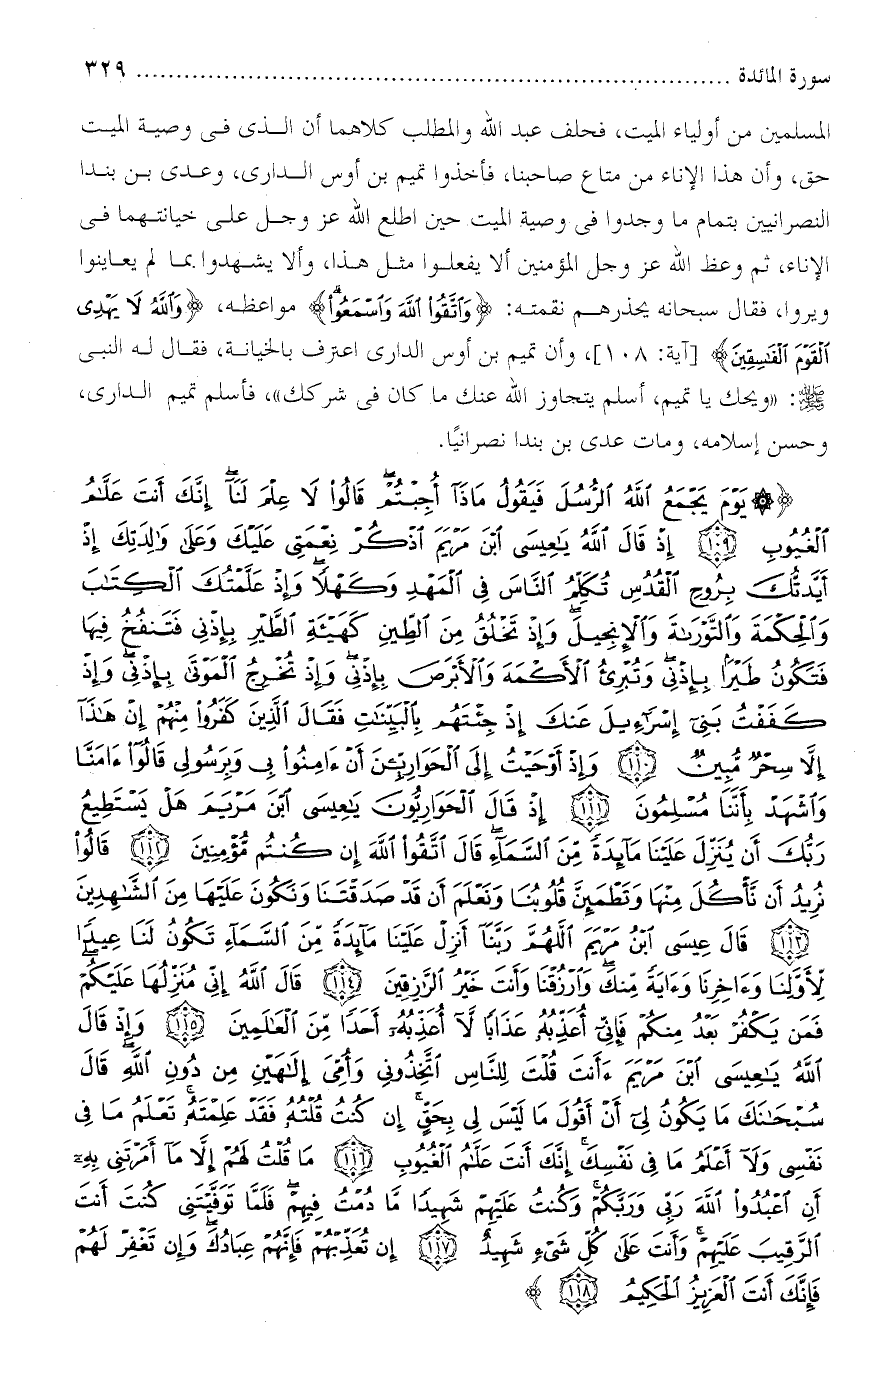 سورة المائدة ........................................................................... ٣٢٩
المسلمين من أولياء الميت، فحلف عبد الله والمطلب كلاهما أن الـذى فـى وصيـة الميـت
حق، وأن هذا الإناء من متاع صاحبنا، فأخذوا تميم بن أوس الـدارى، وعـدى بـن بنـدا
النصرانيين بتمام ما وجدوا فى وصية الميت حين اطلع الله عز وجـل علـى خيانتـهما فـى
الإناء، ثم وعظ الله عز وجل المؤمنين ألا يفعلـوا مثـل هـذا، وألا يشـهدوا بمـا لم يعـاينوا
ويروا، فقال سبحانه يحذرهـم نقمتـه: ﴿وَٱتَّقُوا۟ ٱللَّهَ وَٱسْمَعُوا۟ۗ﴾ مواعظـه، ﴿وَٱللَّهُ لَا يَهْدِى
ٱلْقَوْمَ ٱلْفَٰسِقِينَ﴾ [آية: ١٠٨]، وأن تميم بن أوس الدارى اعترف بالخيانـة، فقـال لـه النبـى
ﷺ: «ويحك يا تميم، أسلم يتجاوز الله عنك ما كان فى شركك»، فأسلم تميم الـدارى،
وحسن إسلامه، ومات عدى بن بندا نصرانيًا.
﴿۞ يَوْمَ يَجْمَعُ ٱللَّهُ ٱلرُّسُلَ فَيَقُولُ مَاذَآ أُجِبْتُمْۖ قَالُوا۟ لَا عِلْمَ لَنَآۖ إِنَّكَ أَنتَ عَلَّٰمُ
ٱلْغُيُوبِ ١٠٩ إِذْ قَالَ ٱللَّهُ يَٰعِيسَى ٱبْنَ مَرْيَمَ ٱذْكُرْ نِعْمَتِى عَلَيْكَ وَعَلَىٰ وَٰلِدَتِكَ إِذْ
أَيَّدتُّكَ بِرُوحِ ٱلْقُدُسِ تُكَلِّمُ ٱلنَّاسَ فِى ٱلْمَهْدِ وَكَهْلًاۖ وَإِذْ عَلَّمْتُكَ ٱلْكِتَٰبَ
وَٱلْحِكْمَةَ وَٱلتَّوْرَىٰةَ وَٱلْإِنجِيلَۖ وَإِذْ تَخْلُقُ مِنَ ٱلطِّينِ كَهَيْـَٔةِ ٱلطَّيْرِ بِإِذْنِى فَتَنفُخُ فِيهَا
فَتَكُونُ طَيْرًۢا بِإِذْنِىۖ وَتُبْرِئُ ٱلْأَكْمَهَ وَٱلْأَبْرَصَ بِإِذْنِىۖ وَإِذْ تُخْرِجُ ٱلْمَوْتَىٰ بِإِذْنِىۖ وَإِذْ
كَفَفْتُ بَنِىٓ إِسْرَٰٓءِيلَ عَنكَ إِذْ جِئْتَهُم بِٱلْبَيِّنَٰتِ فَقَالَ ٱلَّذِينَ كَفَرُوا۟ مِنْهُمْ إِنْ هَٰذَآ
إِلَّا سِحْرٌ مُّبِينٌ ١١٠ وَإِذْ أَوْحَيْتُ إِلَى ٱلْحَوَارِيِّـۧنَ أَنْ ءَامِنُوا۟ بِى وَبِرَسُولِى قَالُوٓا۟ ءَامَنَّا
وَٱشْهَدْ بِأَنَّنَا مُسْلِمُونَ ١١١ إِذْ قَالَ ٱلْحَوَارِيُّونَ يَٰعِيسَى ٱبْنَ مَرْيَمَ هَلْ يَسْتَطِيعُ
رَبُّكَ أَن يُنَزِّلَ عَلَيْنَا مَآئِدَةً مِّنَ ٱلسَّمَآءِۖ قَالَ ٱتَّقُوا۟ ٱللَّهَ إِن كُنتُم مُّؤْمِنِينَ ١١٢ قَالُوا۟
نُرِيدُ أَن نَّأْكُلَ مِنْهَا وَتَطْمَئِنَّ قُلُوبُنَا وَنَعْلَمَ أَن قَدْ صَدَقْتَنَا وَنَكُونَ عَلَيْهَا مِنَ ٱلشَّٰهِدِينَ
١١٣ قَالَ عِيسَى ٱبْنُ مَرْيَمَ ٱللَّهُمَّ رَبَّنَآ أَنزِلْ عَلَيْنَا مَآئِدَةً مِّنَ ٱلسَّمَآءِ تَكُونُ لَنَا عِيدًا
لِّأَوَّلِنَا وَءَاخِرِنَا وَءَايَةً مِّنكَۖ وَٱرْزُقْنَا وَأَنتَ خَيْرُ ٱلرَّٰزِقِينَ ١١٤ قَالَ ٱللَّهُ إِنِّى مُنَزِّلُهَا عَلَيْكُمْۖ
فَمَن يَكْفُرْ بَعْدُ مِنكُمْ فَإِنِّىٓ أُعَذِّبُهُۥ عَذَابًا لَّآ أُعَذِّبُهُۥٓ أَحَدًا مِّنَ ٱلْعَٰلَمِينَ ١١٥ وَإِذْ قَالَ
ٱللَّهُ يَٰعِيسَى ٱبْنَ مَرْيَمَ ءَأَنتَ قُلْتَ لِلنَّاسِ ٱتَّخِذُونِى وَأُمِّىَ إِلَٰهَيْنِ مِن دُونِ ٱللَّهِۖ قَالَ
سُبْحَٰنَكَ مَا يَكُونُ لِىٓ أَنْ أَقُولَ مَا لَيْسَ لِى بِحَقٍّۚ إِن كُنتُ قُلْتُهُۥ فَقَدْ عَلِمْتَهُۥۚ تَعْلَمُ مَا فِى
نَفْسِى وَلَآ أَعْلَمُ مَا فِى نَفْسِكَۚ إِنَّكَ أَنتَ عَلَّٰمُ ٱلْغُيُوبِ ١١٦ مَا قُلْتُ لَهُمْ إِلَّا مَآ أَمَرْتَنِى بِهِۦٓ
أَنِ ٱعْبُدُوا۟ ٱللَّهَ رَبِّى وَرَبَّكُمْۚ وَكُنتُ عَلَيْهِمْ شَهِيدًا مَّا دُمْتُ فِيهِمْۖ فَلَمَّا تَوَفَّيْتَنِى كُنتَ أَنتَ
ٱلرَّقِيبَ عَلَيْهِمْۚ وَأَنتَ عَلَىٰ كُلِّ شَىْءٍ شَهِيدٌ ١١٧ إِن تُعَذِّبْهُمْ فَإِنَّهُمْ عِبَادُكَۖ وَإِن تَغْفِرْ لَهُمْ
فَإِنَّكَ أَنتَ ٱلْعَزِيزُ ٱلْحَكِيمُ ١١٨ ﴾